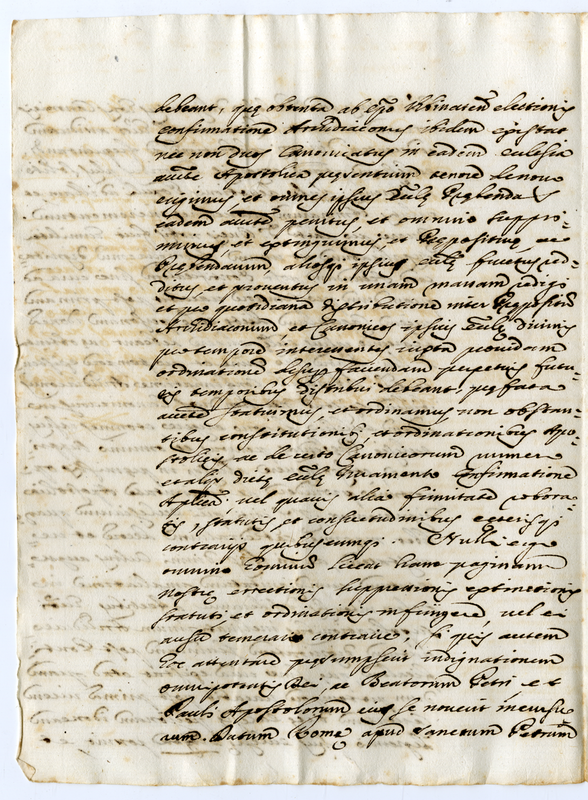 debeant, quę obtenta ab
confirmatione Archidiaconus ibidem existat
nec non duos Canonicatus in eadem ecclesia
aucte Apostolica presentium tenore de novo
erigimus et omnes ipsius Eccłę Prębendas
eadem aucte penitus, et omnino suppri=
mimus, et extinguimus, et Pręposituę, ac
Prębendarum, aliosq; ipsius Eccłę fructus red=
ditus et proventus in unam massam redigi
et pro quotidiana distributione inter Prępositū
Archidiaconum et Canonicos ipsius Eccłę divinis
pro tempore interessentes iuxta
ordinationē desup faciendam perpetuis futu=
ris temporibus distribui debeant, pręfata
aucte statuimus, et ordinamus non obstan=
tibus constitutionib9, et ordinationibus Apo=
stolicis, ac de certo Canonicorum numero
et aliis dictę Eccłę Iuramento confirmatione
Aplica, vel quavis alia firmitate robora=
tis, statutis et consuetudinibus ceterisq;
contrariis quibuscumq;. Nulli ergo
omnino hominū liceat hanc paginam
nostrę erectionis suppressionis extinctionis
statuti et ordinationis infringere, vel ei
ausu temerario contraire, si quis autem
hoc attentare pręsumpserit indignationem
omnipotentis Dei, ac Beatorum Petri et
Pauli Apostolorum eius se noverit incursu
rum. Datum Romę apud Sanctum Petrum